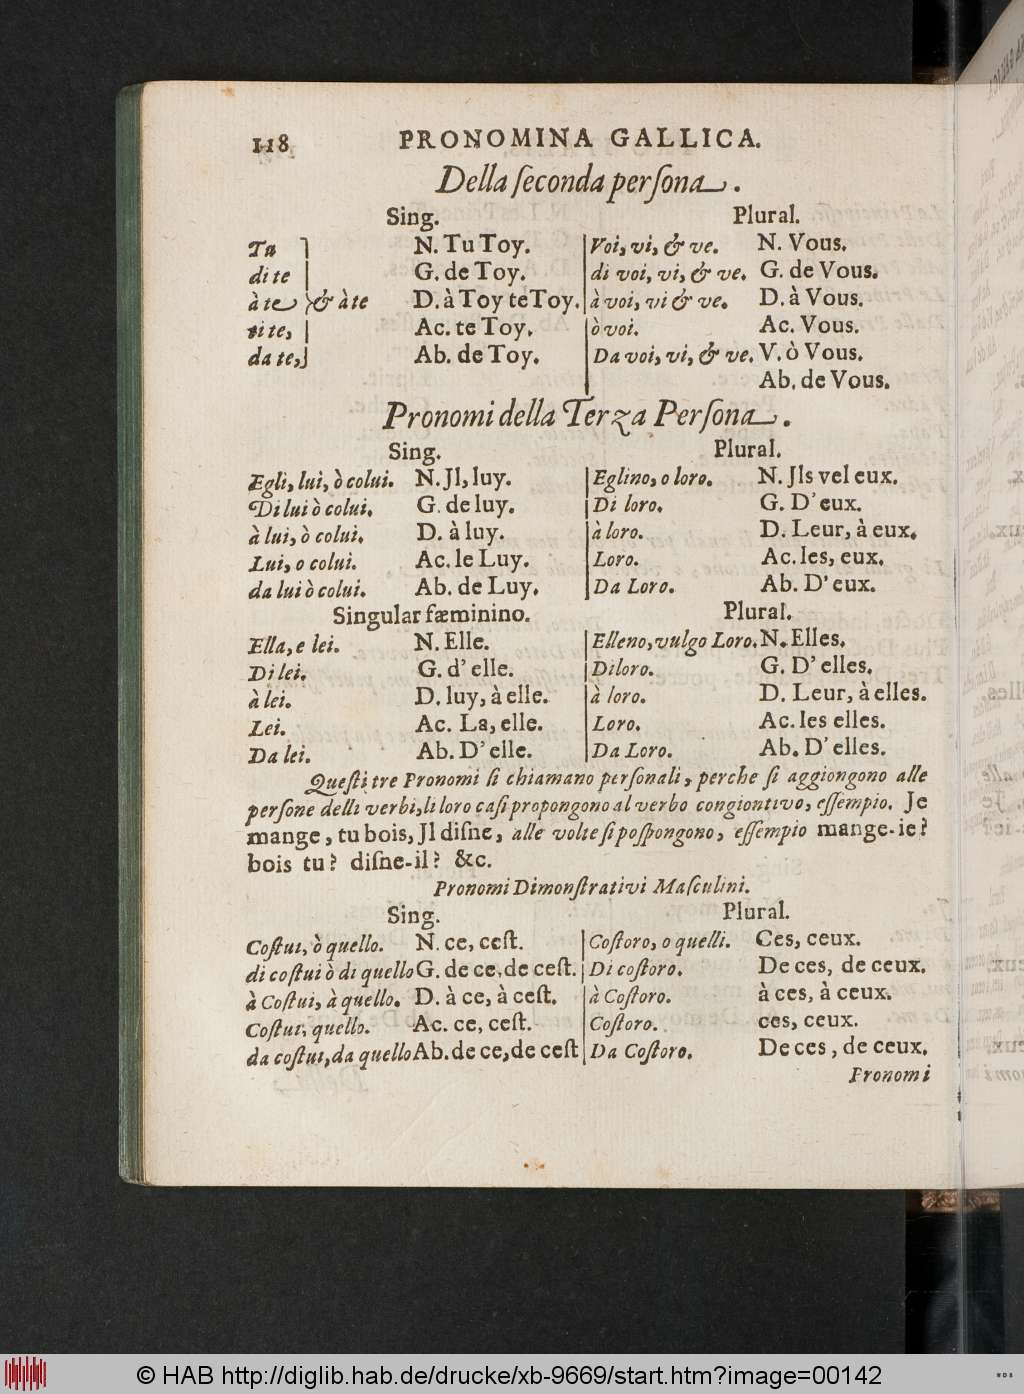 118 PRONOMINA GALLICA.
Della ſeconda perſona.
Sing. Plural.
Tu N. Tu Toy. Voi, vi, & ve. N. Vous.
di te G. de Toy. di voi, vi, & ve. G. de Vous.
à te & à te D. à Toy te Toy. à voi, vi & ve. D. à Vous.
ti te, Ac. te Toy. ò voi. Ac. Vous.
da te, Ab. de Toy. Da voi, vi, & ve. V. ò Vous.
Ab. de Vous.
Pronomi della Terza Perſona.
Sing. Plural.
Egli, lui, ò colui. N. Jl, luy. Eglino, o loro. N. Jls vel eux.
Di lui ò colui. G. de luy. Di loro. G. D' eux.
à lui, ò colui. D. à luy. à loro. D. Leur, à eux.
Lui, o colui. Ac. le Luy. Loro. Ac. les, eux.
da lui ò colui. Ab. de Luy. Da Loro. Ab. D' eux.
Singular fæminino. Plural.
Ella, e lei. N. Elle. Elleno, vulgo Loro. N. Elles.
Di lei. G. d' elle. Di loro. G. D' elles.
à lei. D. luy, à elle. à loro. D. Leur, à elles.
Lei. Ac. La, elle. Loro. Ac. les elles.
Da lei. Ab. D' elle. Da Loro. Ab. D' elles.
Queſti tre Pronomi ſi chiamano perſonali, perche ſi aggiongono alle
perſone delli verbi, li loro caſi propongono al verbo congiontivo, eſſempio. Je
mange, tu bois, Jl diſne, alle volte ſi poſpongono, eſſempio mange-ie?
bois tu? diſne-il? &c.
Pronomi Dimonſtrativi Maſculini.
Sing. Plural.
Coſtui, ò quello. N. ce, ceſt. Coſtoro, o quelli. Ces, ceux.
di coſtui ò di quello G. de ce, de ceſt. Di coſtoro. De ces, de ceux.
à Coſtui, à quello. D. à ce, à ceſt. à Coſtoro. à ces, à ceux.
Coſtui, quello. Ac. ce, ceſt. Coſtoro. ces, ceux.
da coſtui, da quello Ab. de ce, de ceſt Da Coſtoro. De ces, de ceux.
Pronomi
© HAB http://diglib.hab.de/drucke/xb-9669/start.htm?image=00142